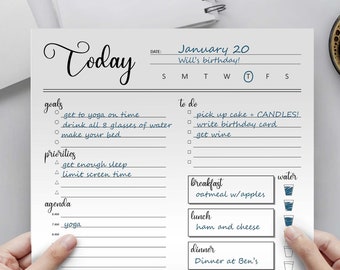 Today
DATE: January 20
Will's birthday!
S M T W T F S
goals
get to yoga on time
drink all 8 glasses of water
make your bed
to do
pick up cake + CANDLES!
write birthday card
get wine
priorities
get enough sleep
limit screen time
agenda
6 AM
7 AM yoga
8 AM
breakfast
oatmeal w/apples
water
lunch
ham and cheese
dinner
Dinner at Ben's